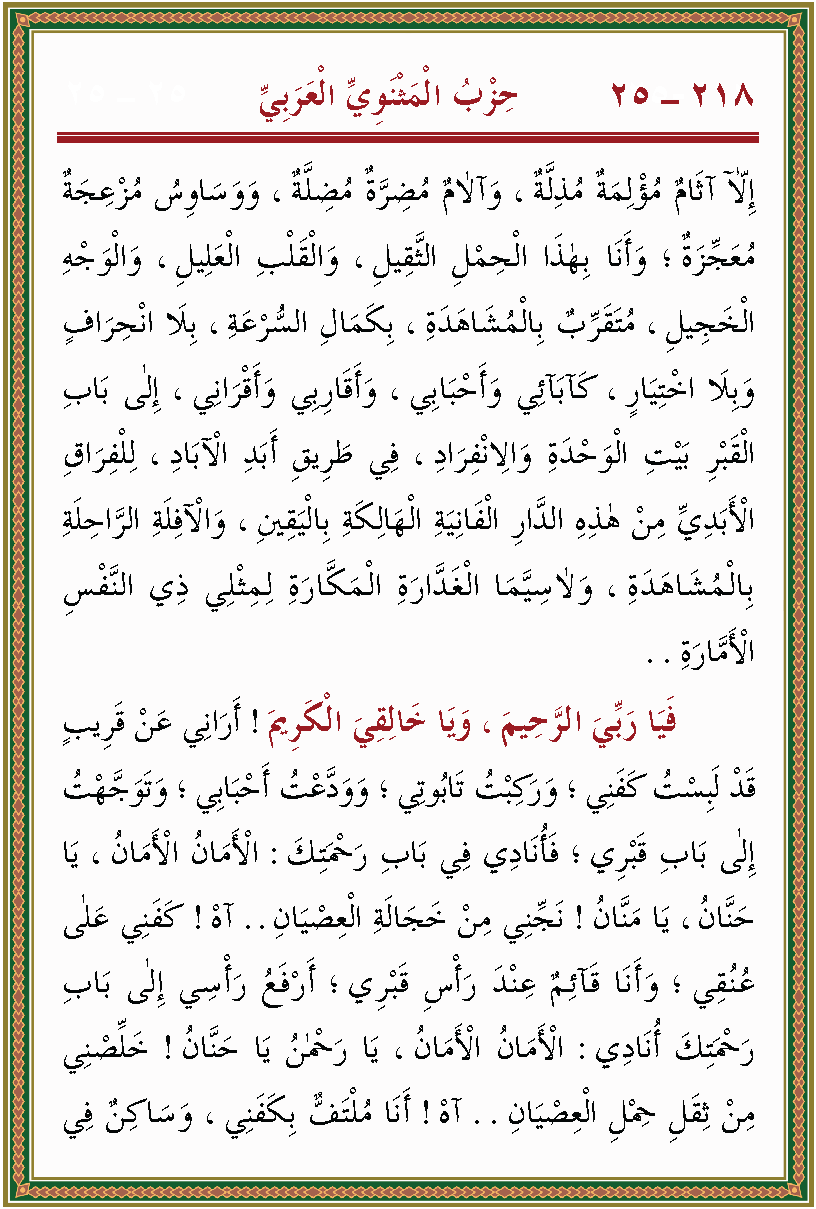 ٢١٨ ـ ٢٥ حِزْبُ الْمَثْنَوِيِّ الْعَرَبِيِّ ٢٥ ـ ٢٥
إِلَّا آثَامٌ مُؤْلِمَةٌ مُذِلَّةٌ ، وَآلَامٌ مُضِرَّةٌ مُضِلَّةٌ ، وَوَسَاوِسُ مُزْعِجَةٌ
مُعَجِّزَةٌ ؛ وَأَنَا بِهٰذَا الْحِمْلِ الثَّقِيلِ ، وَالْقَلْبِ الْعَلِيلِ ، وَالْوَجْهِ
الْخَجِيلِ ، مُتَقَرِّبٌ بِالْمُشَاهَدَةِ ، بِكَمَالِ السُّرْعَةِ ، بِلَا انْحِرَافٍ
وَبِلَا اخْتِيَارٍ ، كَآبَآئِي وَأَحْبَابِي وَأَقَارِبِي وَأَقْرَانِي ، إِلٰى بَابِ
الْقَبْرِ بَيْتِ الْوَحْدَةِ وَالِانْفِرَادِ ، فِي طَرِيقِ أَبَدِ الْآبَادِ ، لِلْفِرَاقِ
الْأَبَدِيِّ مِنْ هٰذِهِ الدَّارِ الْفَانِيَةِ الْهَالِكَةِ بِالْيَقِينِ ، وَالْآفِلَةِ الرَّاحِلَةِ
بِالْمُشَاهَدَةِ ، وَلَاسِيَّمَا الْغَدَّارَةِ الْمَكَّارَةِ لِمِثْلِي ذِي النَّفْسِ
الْأَمَّارَةِ . .
فَيَا رَبِّيَ الرَّحِيمَ ، وَيَا خَالِقِيَ الْكَرِيمَ ! أَرَانِي عَنْ قَرِيبٍ
قَدْ لَبِسْتُ كَفَنِي ؛ وَرَكِبْتُ تَابُوتِي ؛ وَوَدَّعْتُ أَحْبَابِي ؛ وَتَوَجَّهْتُ
إِلٰى بَابِ قَبْرِي ؛ فَأُنَادِي فِي بَابِ رَحْمَتِكَ : الْأَمَانُ الْأَمَانُ ، يَا
حَنَّانُ ، يَا مَنَّانُ ! نَجِّنِي مِنْ خَجَالَةِ الْعِصْيَانِ . . آهْ ! كَفَنِي عَلٰى
عُنُقِي ؛ وَأَنَا قَآئِمٌ عِنْدَ رَأْسِ قَبْرِي ؛ أَرْفَعُ رَأْسِي إِلٰى بَابِ
رَحْمَتِكَ أُنَادِي : الْأَمَانُ الْأَمَانُ ، يَا رَحْمٰنُ يَا حَنَّانُ ! خَلِّصْنِي
مِنْ ثِقَلِ حِمْلِ الْعِصْيَانِ . . آهْ ! أَنَا مُلْتَفٌّ بِكَفَنِي ، وَسَاكِنٌ فِي